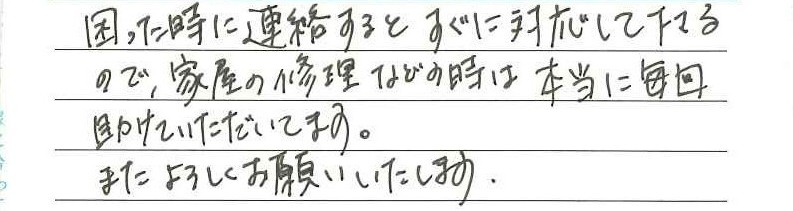 困った時に連絡するとすぐに対応して下さる
ので、家屋の修理などの時は本当に毎回
助けていただいてます。
またよろしくお願いいたします.